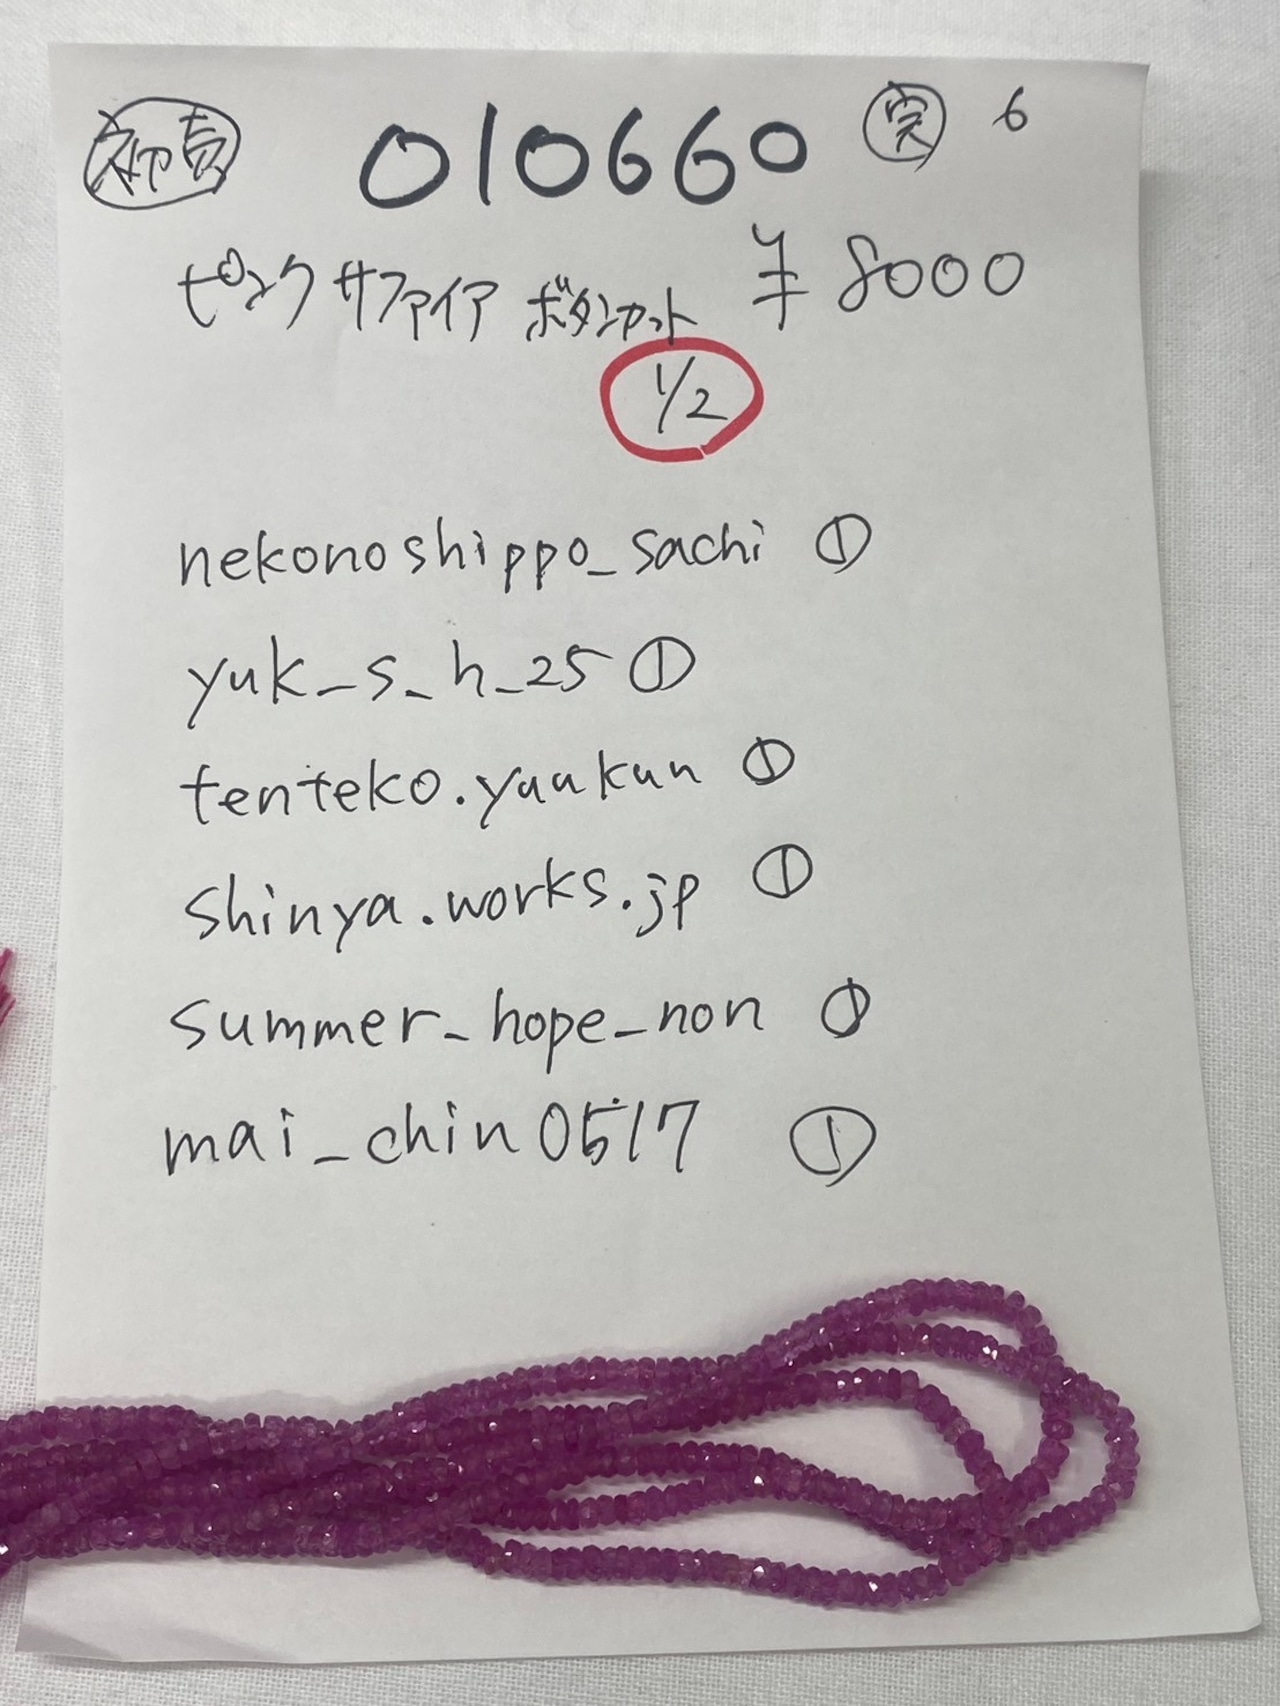 010660 完 6
ピンクサファイア ボタンカット ¥8000
1/2
nekonoshippo_sachi ①
yuk_s_h_25 ①
tenteko.yuukun ①
shinya.works.jp ①
summer_hope_non ①
mai_chin0517 ①